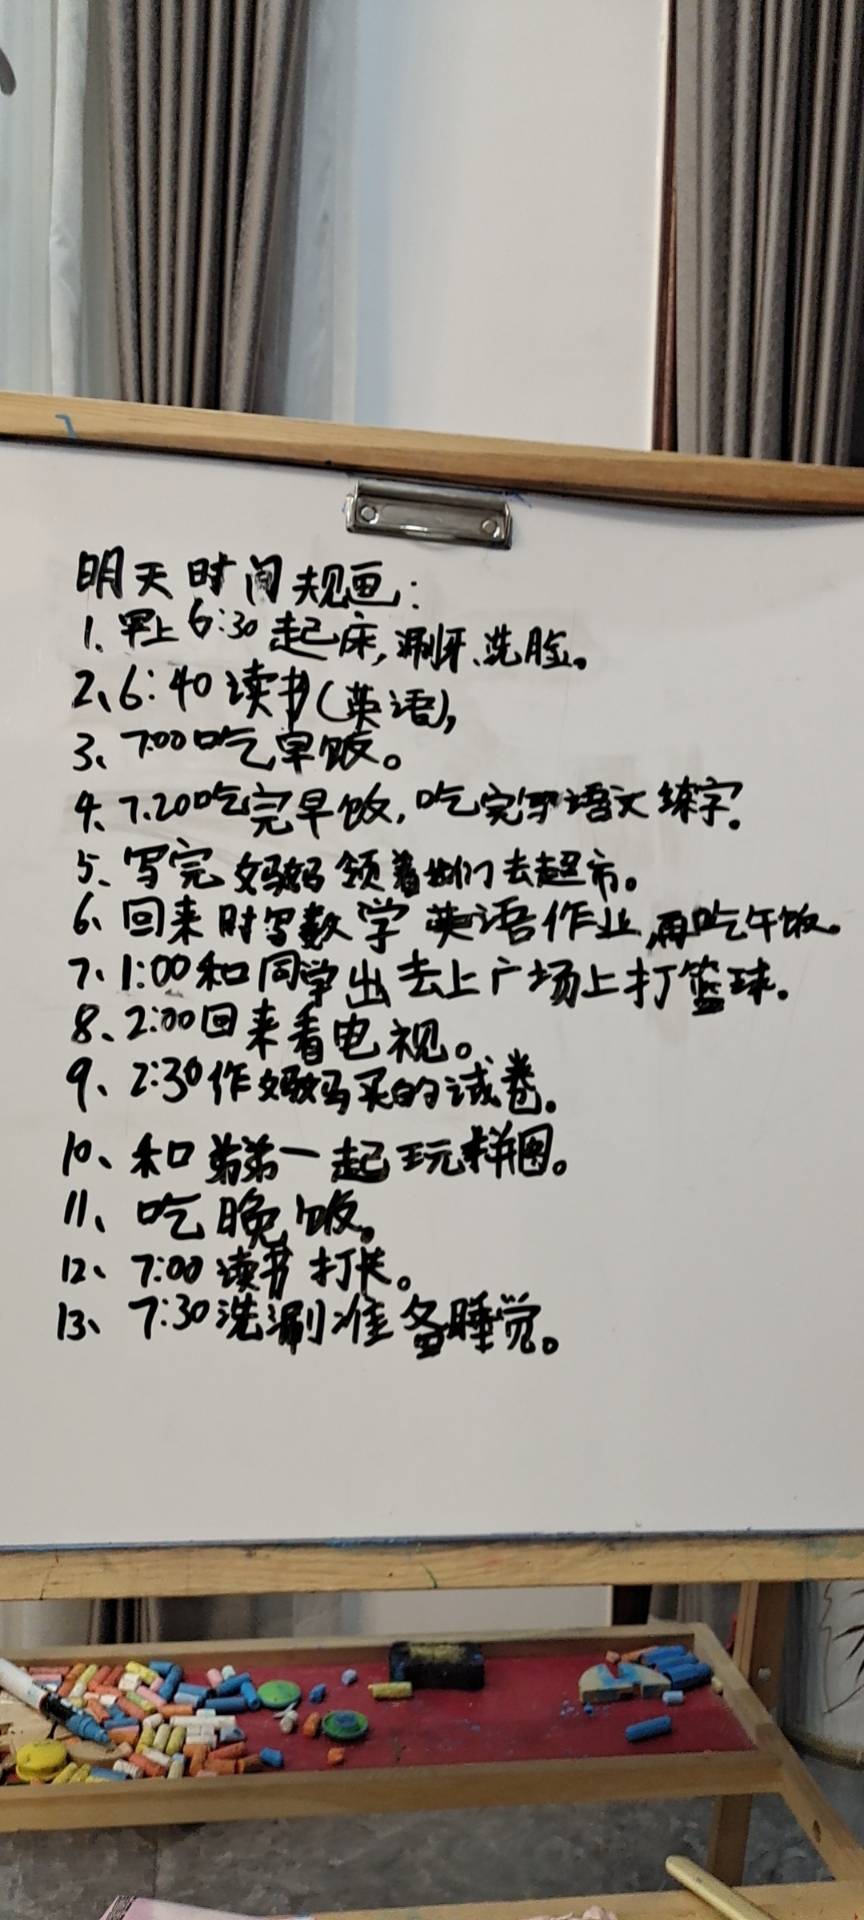 明天时间规画:
1、早上6:30起床,涮牙、洗脸。
2、6:40读书(英语),
3、7:00吃早饭。
4、7.20吃完早饭,吃完写语文练字。
5、写完妈妈领着我们去超市。
6、回来时写数学英语作业,再吃午饭。
7、1:00和同学出去上广场上打篮球.
8、2:00回来看电视。
9、2:30作妈妈买的试卷。
10、和弟弟一起玩拼图。
11、吃晚饭。
12、7:00读书打长。
13、7:30洗涮准备睡觉。